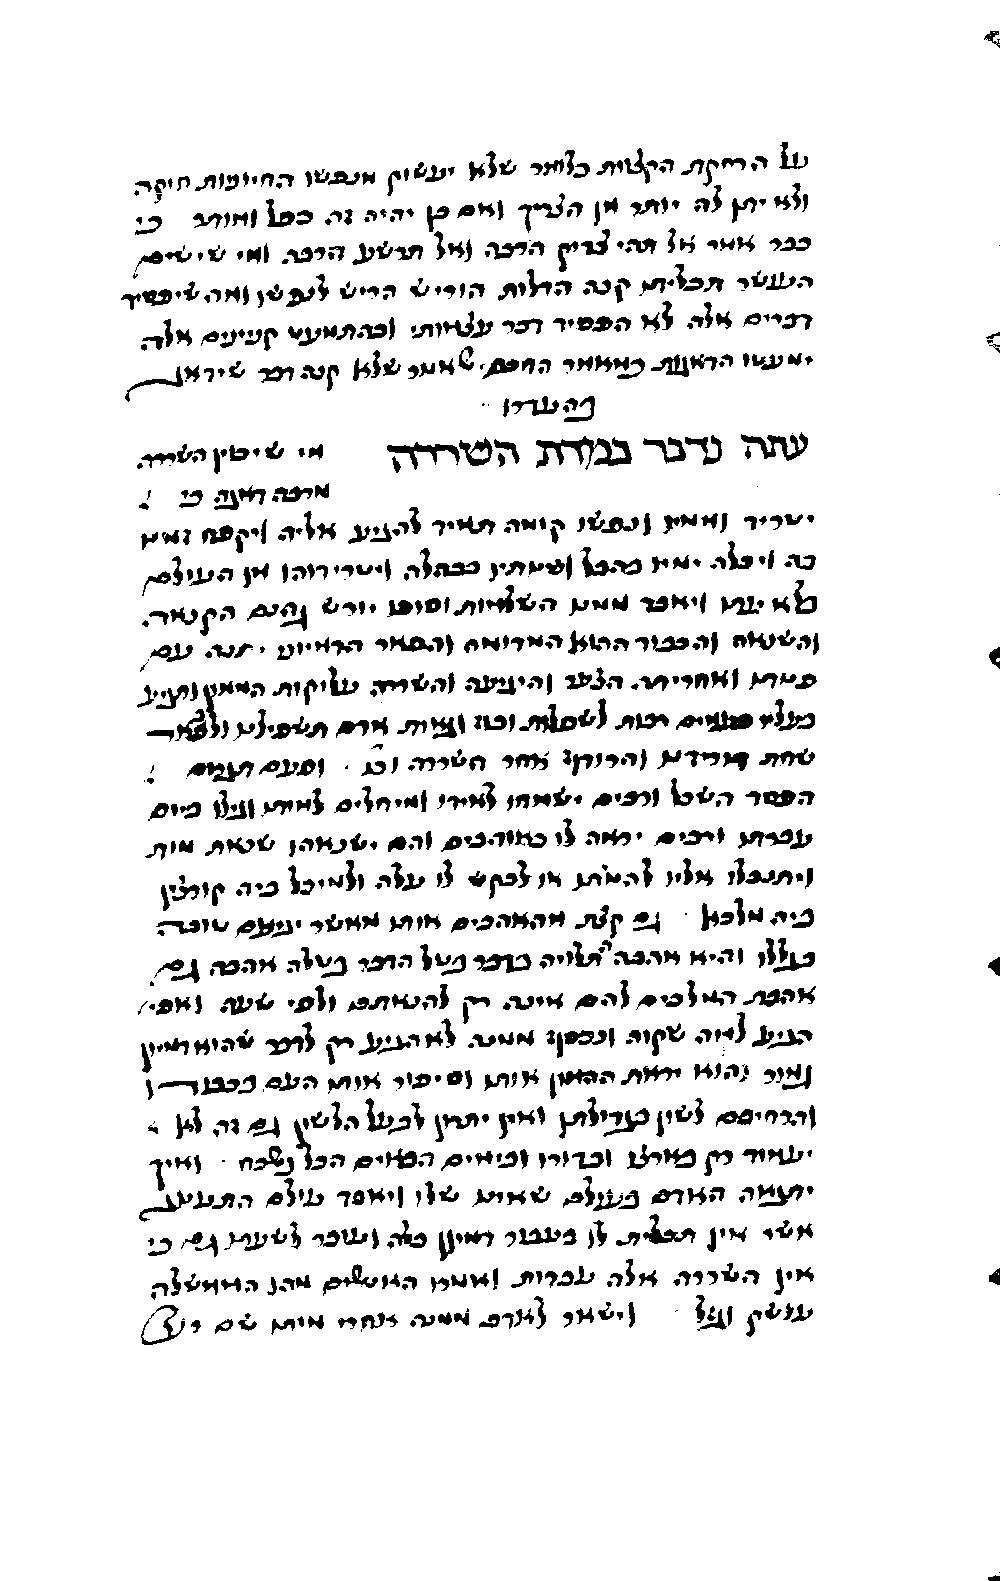 על הרחקת הקצוות כלומר שלא יעשוק מנפשו החיונות חוקה
ולא יתן לה יותר מן הצריך ואם כן יהיה זה כסל ומותר כי
כבר אמר אל תהי צדיק הרבה ואל תרשע הרבה ומי שישים
העושר תכליתו קנה הדלות הוריש הריש לנפשו ומה שיפסיד
דברים אלה לא הפסיד דבר עצמותי ובהתמעט קניינים אלה
ימעטו הדאגות כמאמר החכם שאמר שלא קנה דבר שידאג
בהעדרו
עתה נדבר במדת השררה מי שיסוין השררה
מרבה דאגה כי
ישריד ונפשו קומה תמיד להגיע אליה ויקפח
בה ויכלה ימיו בהבל ושנותיו בבהלה וישרידוהו מן העולם
בלא עת ויאבד ממנו השלמות וסופו יורש גהינם הקנאה
והשנאה והכבוד ההוא המדומה והפאר הראיוני יתנה עם
ואחריתה הצער והיגיעה והשררה
רבות לשפלות וכו וגאות אדם תשפילנו
שחת אחר השררה וכו ופעם
הפסד השכל ורבים ישמחו לאידו ומיחלים למותו וגילו ביום
עברתו ורבים יראה לו כאוהבים והם ישנאוהו שנאת מות
ויתנכלו אליו להמיתו או לבקש לו עלה ולמיכל ביה קורצין
בית מלכא גם קצת מהאהבים אותו מאשר יגיעם טובה
בגללו והיא אהבה תלויה בדבר בטל הדבר בטלה אהבה גם
אהבת המלכים להם אינה רק להנאתם ולפי שעה ואפי
הגיע לזה שקוה ונכסף ממנה לא הגיע רק לדבר שהוא דמיון
גמור והוא יראת ההמון אותו וסיפור אותו העם בכבודו
והרחיבם לשון בגדולתו ואין יתרון לבעל הלשון גם זה לא
יעמוד רק בארצו ובדורו ובימים הבאים הכל נשכח ואיך
ידמה האדם בעולם שאינו שלו ויאבד עולם התענוג
אשר אין תכלית לו בעבור דמיון כלה ועובר לשעתו גם כי
אין השררה אלה עבדות ואמרו המושלים מהן הממשלה
עושק וגזל וישאר לאדם ממנה